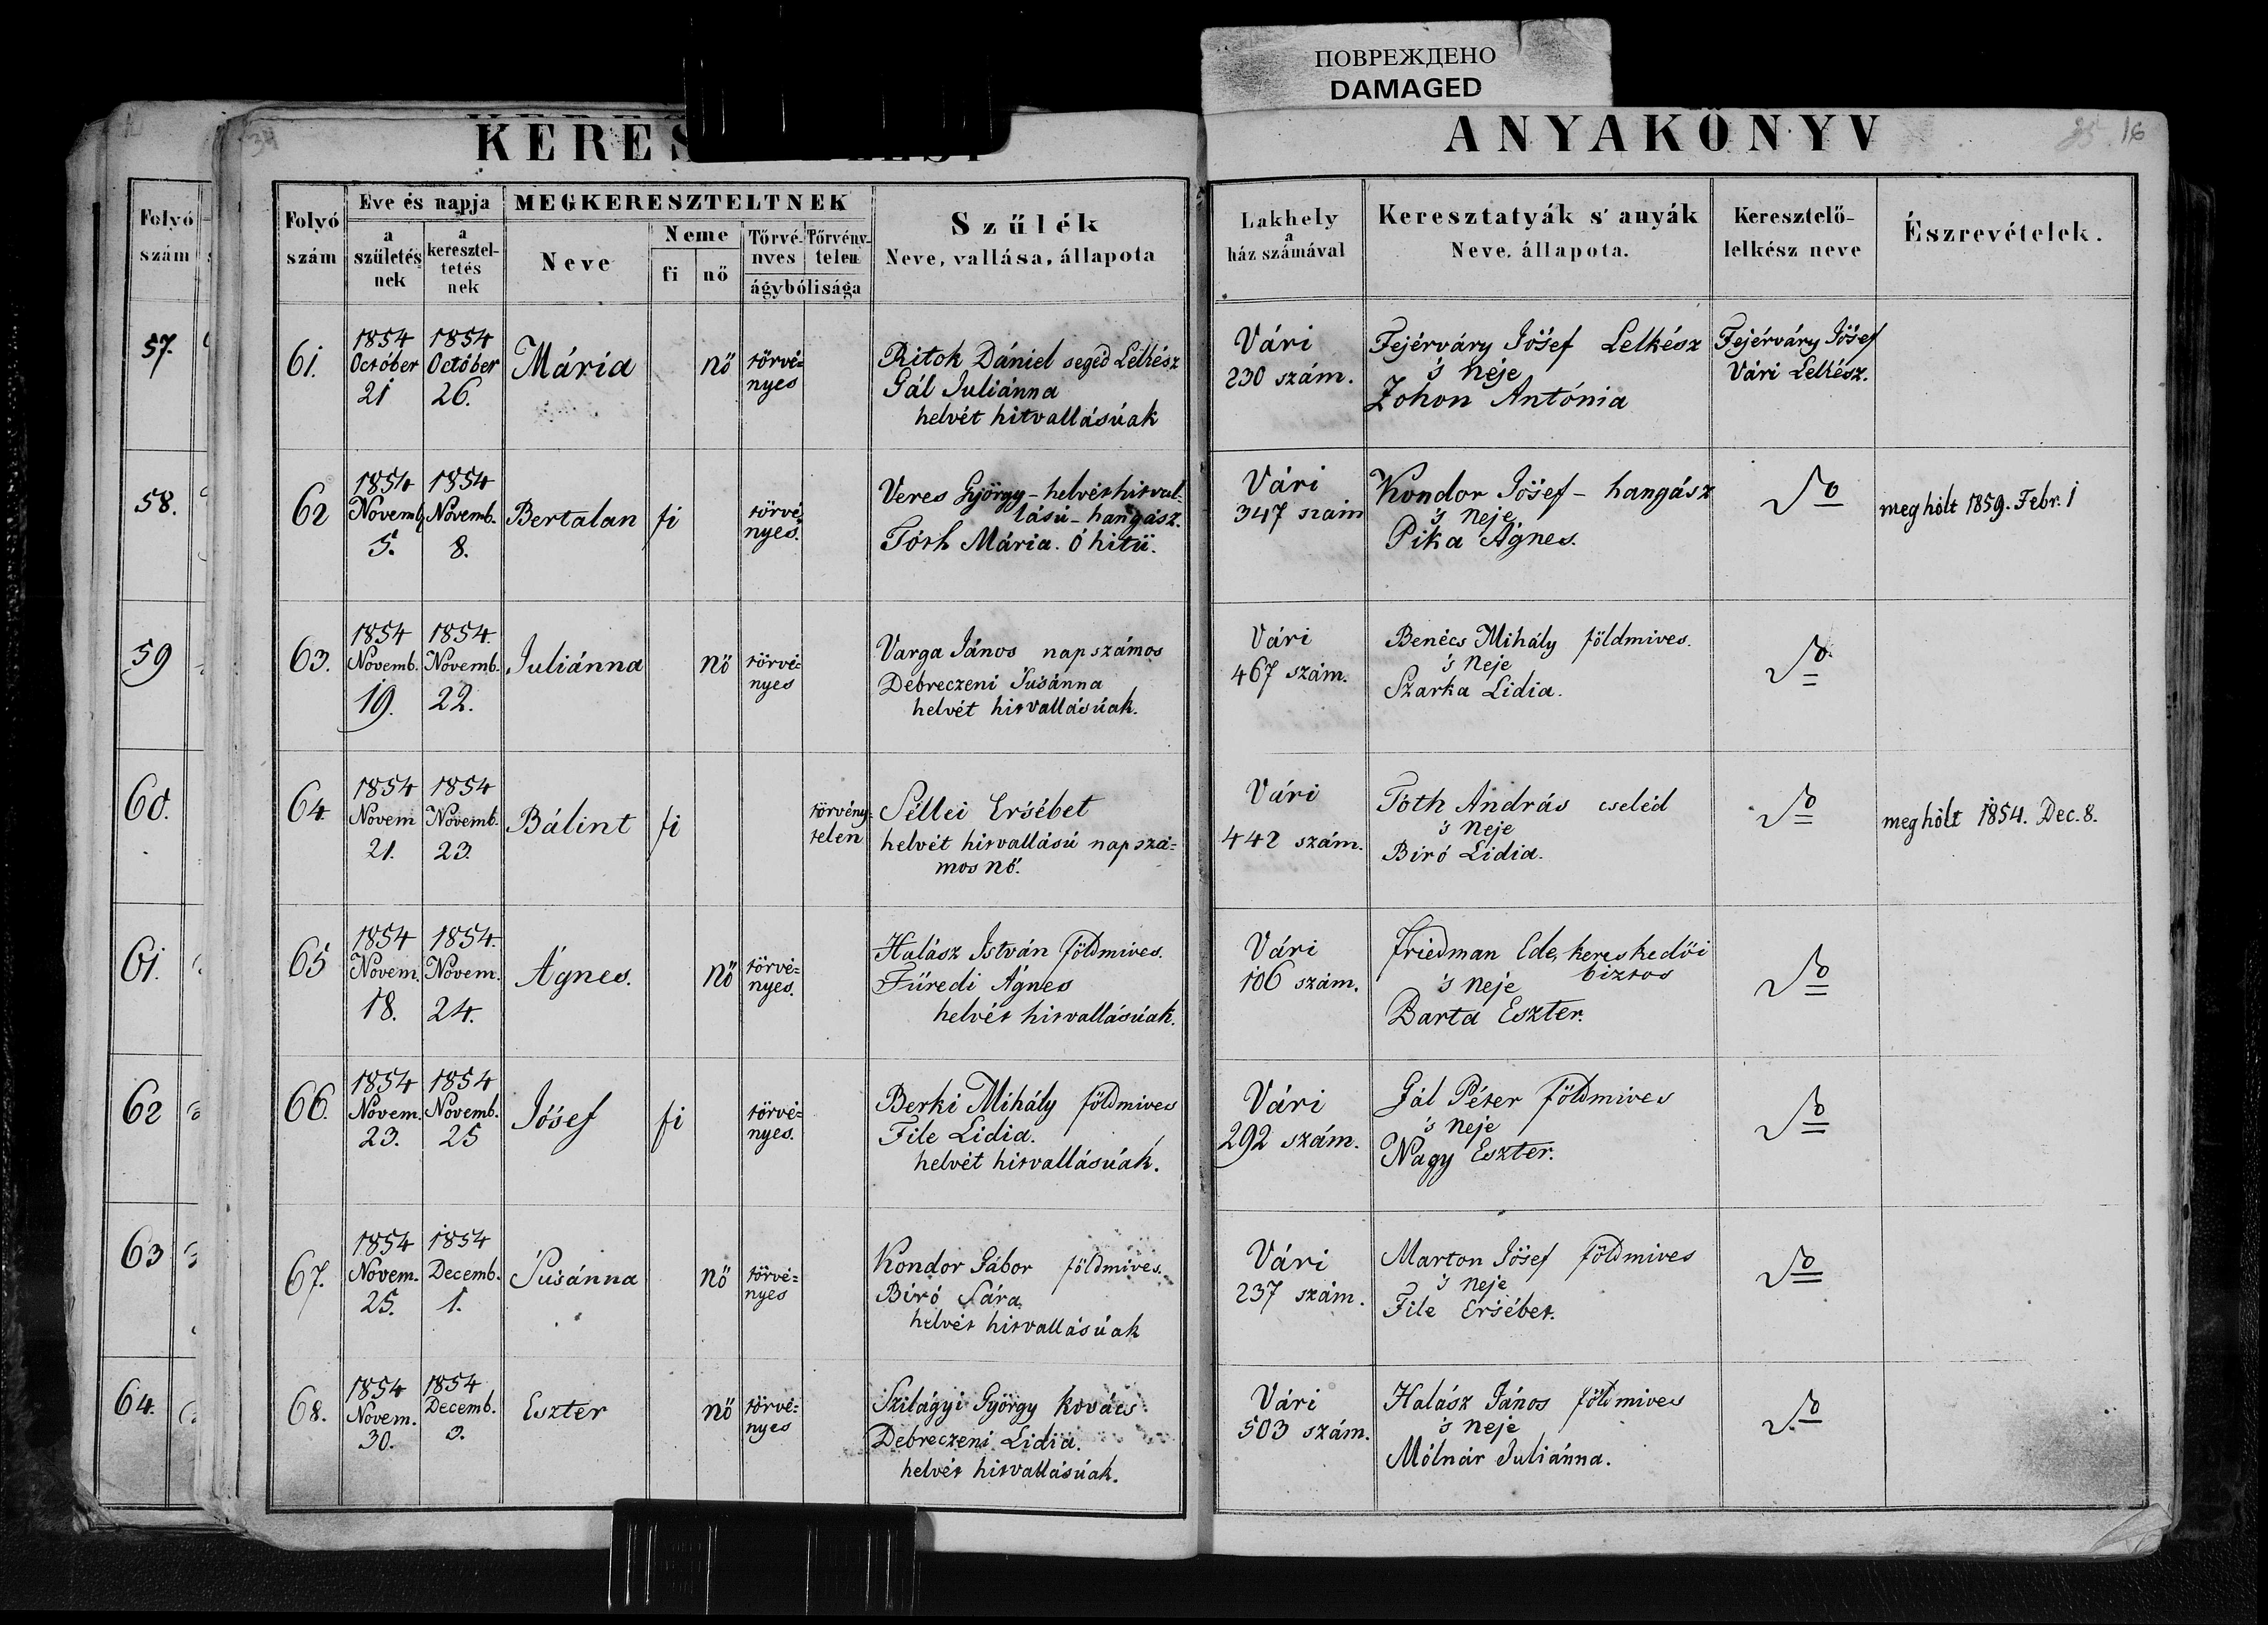 ПОВРЕЖДЕНО
DAMAGED
KERES
ANYAKÖNYV
16
Folyó
szám
57.
58.
59
60.
61.
62
63
64.
Folyó
szám
Eve és napja
a
születés
nek
a
keresztel-
tetés
nek
MEGKERESZTELTNEK
Neve
Neme
fi
nő
Törvé-
nyes
Törvény-
telen
ágybólisága
Szűlék
Neve, vallása, állapota
Lakhely
a
ház számával
Keresztatyák s' anyák
Neve, állapota.
Keresztelő-
lelkész neve
Észrevételek.
61.
1854
October
21
1854
October
26.
Mária
nő
törvé=
nyes
Ritok Dániel segéd Lelkész
Gál Juliánna
helvét hitvallásúak
Vári
230 szám.
Fejérváry Jósef Lelkész
's neje
Zohon Antónia
Fejérváry Jósef
Vári Lelkész.
62
1854
Novemb.
5.
1854
Novemb.
8.
Bertalan
fi
törvé
nyes.
Veres György - helvét hitval-
lású - hangász.
Tóth Mária. Ó hitü.
Vári
347 szám
Kondor Jósef - hangász
's neje.
Pika Ágnes.
meghólt 1859. Febr. 1
63.
1854
Novemb.
19.
1854.
Novemb.
22.
Juliánna
nő
törvé-
nyes
Varga János napszámos
Debreczeni Susánna
helvét hitvallásúak.
Vári
467 szám.
Benécs Mihály földmives.
's neje
Szarka Lidia.
64
1854
Novem
21.
1854
Novemb.
23.
Bálint
fi
törvény=
telen
Séllei Ersébet
helvét hitvallású napszá=
mos nő.
Vári
442 szám.
Tóth András cseléd
's neje
Biró Lidia.
meghólt 1854. Dec. 8.
65
1854
Novem.
18.
1854.
Novem.
24.
Ágnes.
nő
törvé=
nyes.
Halász István földmives.
Füredi Ágnes
helvét hitvallásúak.
Vári
106 szám.
Friedman Ede, kereskedői
biztos
's neje
Barta Eszter.
66.
1854
Novem.
23.
1854
Novemb.
25
Jósef
fi
törvé=
nyes.
Berki Mihály földmives
File Lidia.
helvét hitvallásúak.
Vári
292 szám.
Gál Péter földmives
's neje
Nagy Eszter.
67.
1854
Novem.
25.
1854
Decemb.
1.
Susánna
nő
törvé=
nyes
Kondor Gábor földmives.
Biró Sára
helvét hitvallásúak
Vári
237 szám.
Marton Jósef földmives
's neje
File Ersébet.
68.
1854
Novem.
30.
1854
Decemb.
3.
Eszter
nő
törvé=
nyes
Szilágyi György kovács
Debreczeni Lidia.
helvét hitvallásúak.
Vári
503 szám.
Halász János földmives
's neje
Mólnár Juliánna.